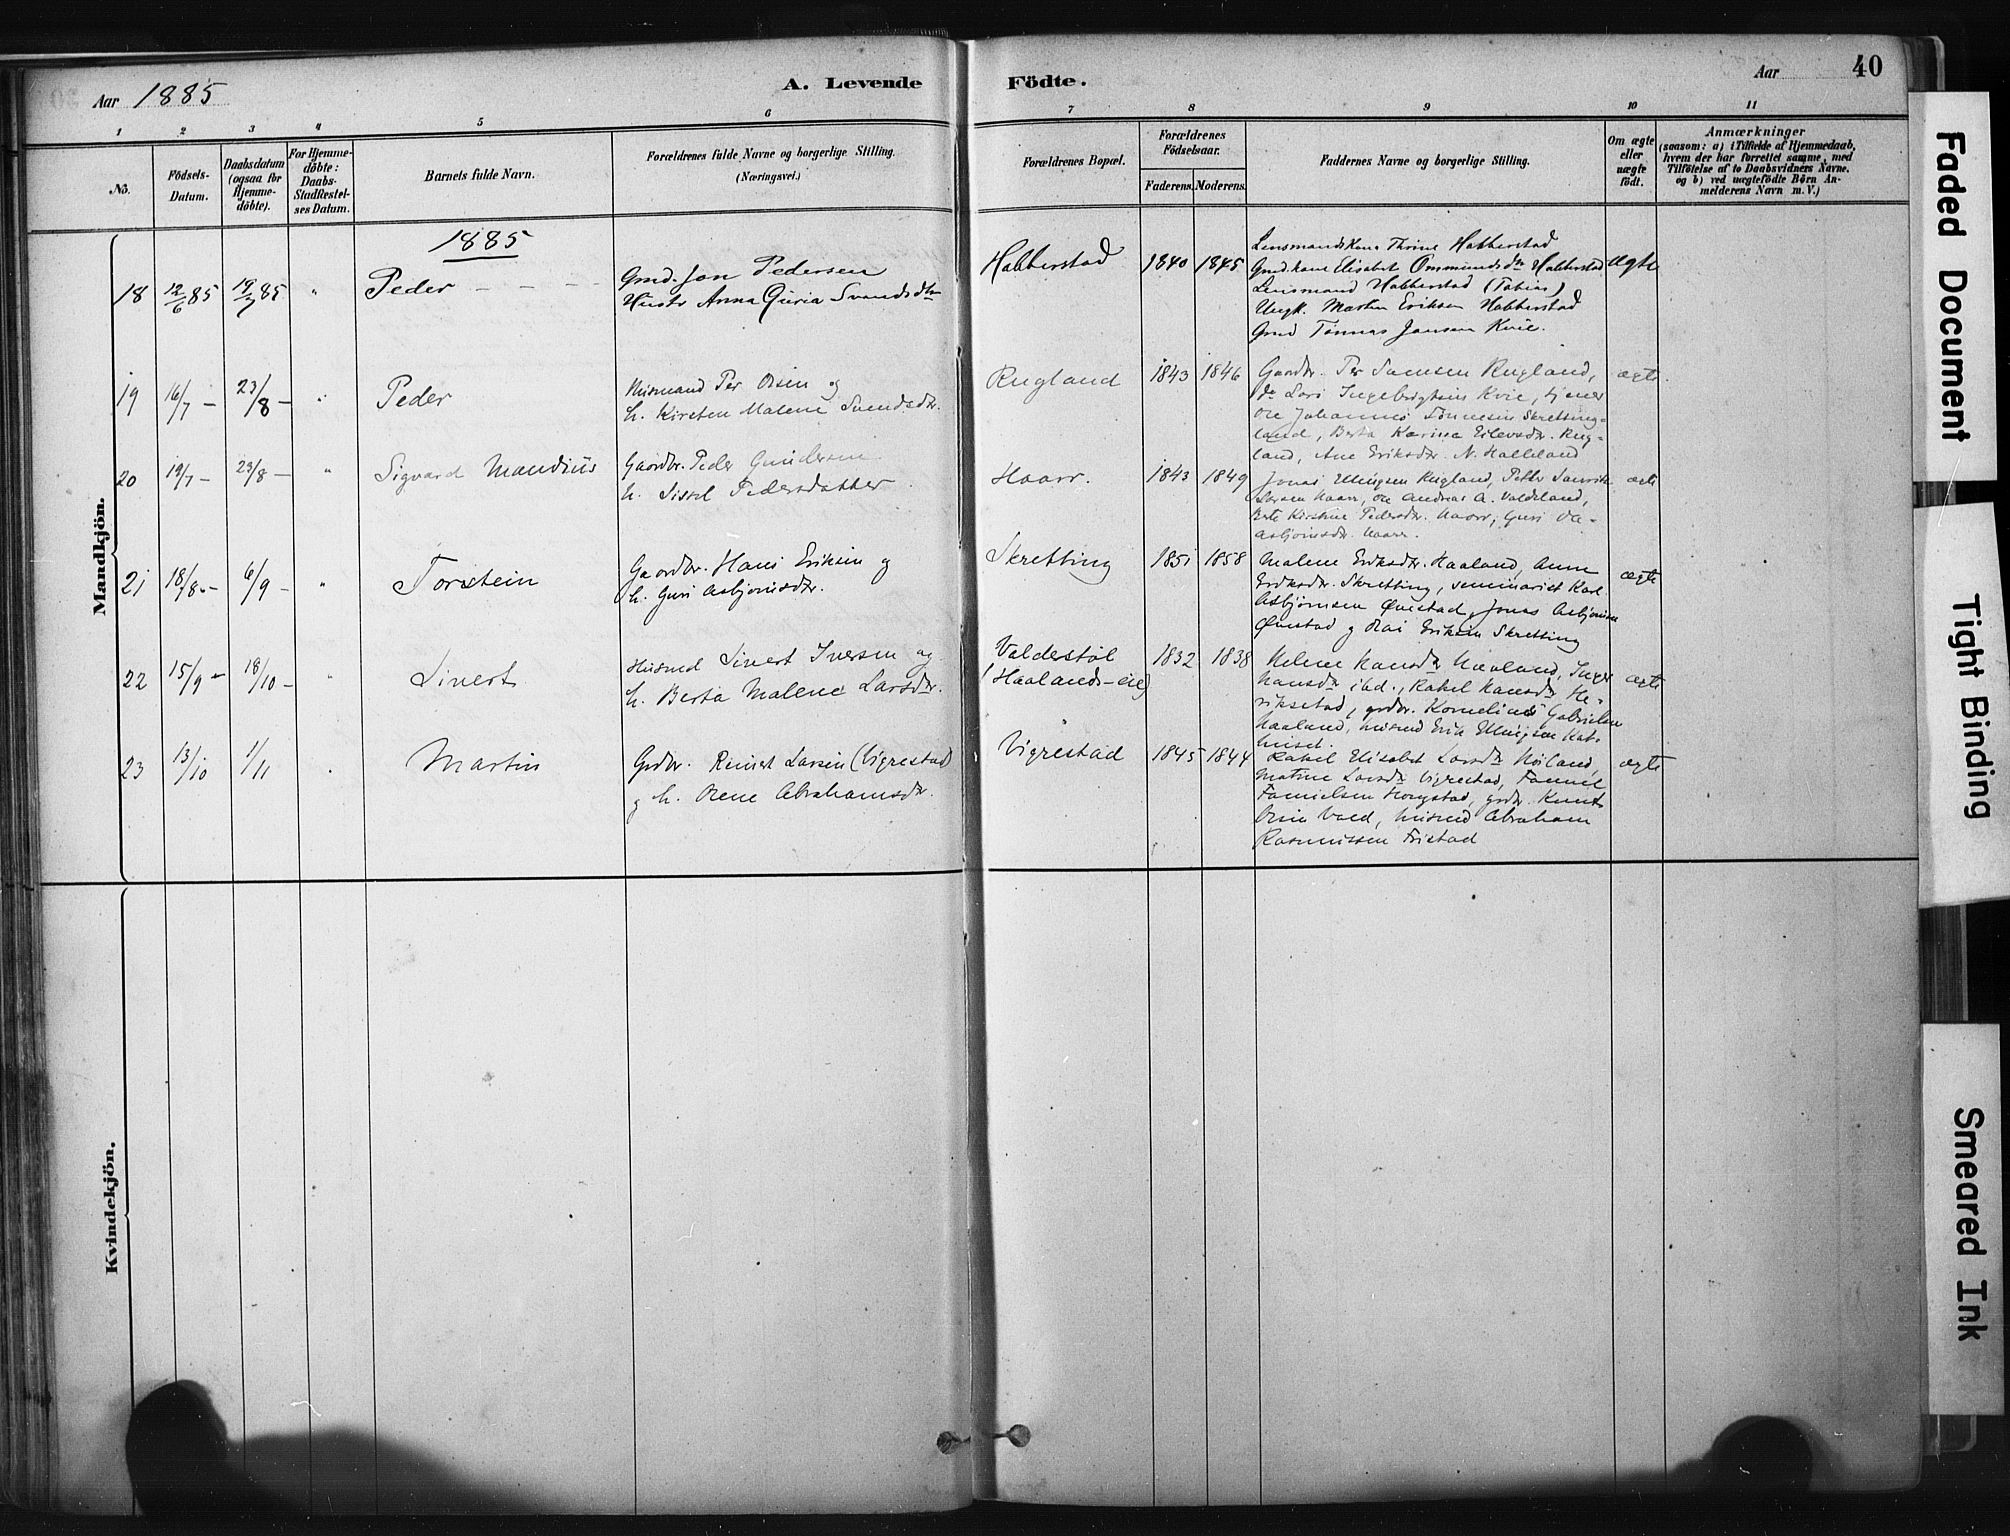 Aar 1885
A. Levende
Födte.
Aar
40
1 2 3 4 5 6 7 8 9 10 11
No.
Födsels-
Datum.
Daabsdatum
(ogsaa for
Hjemme-
döbte).
For Hjemme-
döbte:
Daabs-
Stadfæstel-
ses Datum.
Barnets fulde Navn.
Forældrenes fulde Navne og borgerlige Stilling.
(Næringsvei.)
Forældrenes Bopæl.
Forældrenes
Födselsaar.
Faderens.
Moderens.
Faddernes Navne og borgerlige Stilling.
Om ægte
eller
uægte
født.
Anmærkninger
(saasom: a) i Tilfælde af Hjemmedaab,
hvem der har forrettet samme, med
Tilföielse af to Daabsvidners Navne,
og b) ved uægtefödte Börn An-
melderens Navn m. V.)
Mandkjön.
1885
18 12/6 85 19/7 85 " Peder - - - -
Gmd. Jon Pedersen
Hustr Anna Guria Svendsdtr
Habberstad 1840 1845
Lensmandskone Thrine Habberstad
Gmd.kone Elisabet Ommundsdtr Habberstad
Lensmand Habberstad (Tobias)
Ungk. Martin Eriksen Habberstad
Gmd Tönnas Jansen Kvie.
ægte
19 16/7 - 23/8 - " Peder
Husmand Per Olsen og
h. Kirsten Malene Svendsdtr.
Rugland 1843 1846
Gaardbr. Per Samsen Rugland,
do Lars Ingebrigtsen Kvie, tjener
Ole Johannes Tönnesen Skretting-
land, Berta Karine Eilevsdtr. Rug-
land, Ane Eriksdtr. N. Halleland
ægte.
20 19/7 - 23/8 - " Sigvard Mandius
Gaardbr. Peder Gundersen
h. Sissel Pedersdatter
Haarr. 1843 1849
Jonas Ellingsen Rugland, Petter
Larsen Haarr, Ole Andreas A. Valdeland,
Berte Kirstine Pedersdtr. Haarr, Guri
Asbjörnsdtr. Haarr.
ægte
21 18/8 - 6/9 - " Torstein
Gaardbr. Hans Eriksen og
h. Guri Asbjörnsdtr.
Skretting 1851 1858
Malene Eriksdtr. Haaland, Anne
Eriksdtr. Skretting, seminarist Karl
Asbjörnsen Qvistad, Jonas Asbjörnsen
Qvistad og Eriksen Skretting
ægte
22 15/9 - 18/10 - Sivert
Husmd Sivert Iversen og
h. Berta Malene Larsdtr.
Valdestöl
(Haalands-eie) 1832 1838
Helene Hansdtr Haaland, Inger
Hansdtr ibd., Rakel Hansdtr He-
rikstad, grdbr. Kornelius Gabrielsen
Haaland, husmd Erik Ellingsen
ægte
23 13/10 1/11 Martin
Grdbr. Reinert Larsen (Vigrestad)
og h. Olene Abrahamsdtr.
Vigrestad 1845 1844
Rakel Elisabet Larsdtr Höiland,
Matine Larsdtr Vigrestad, Fannuel
Fannielsen Hongstad, grdbr. Knut
Olsen Voed, husmd Abraham
Rasmussen Fristad
ægte
Kvindekjön.
Faded Document
Tight Binding
Smeared Ink